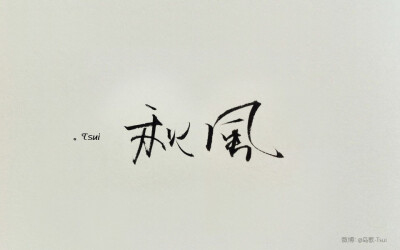 。Tsui
秋風
微博 @岛歌-Tsui